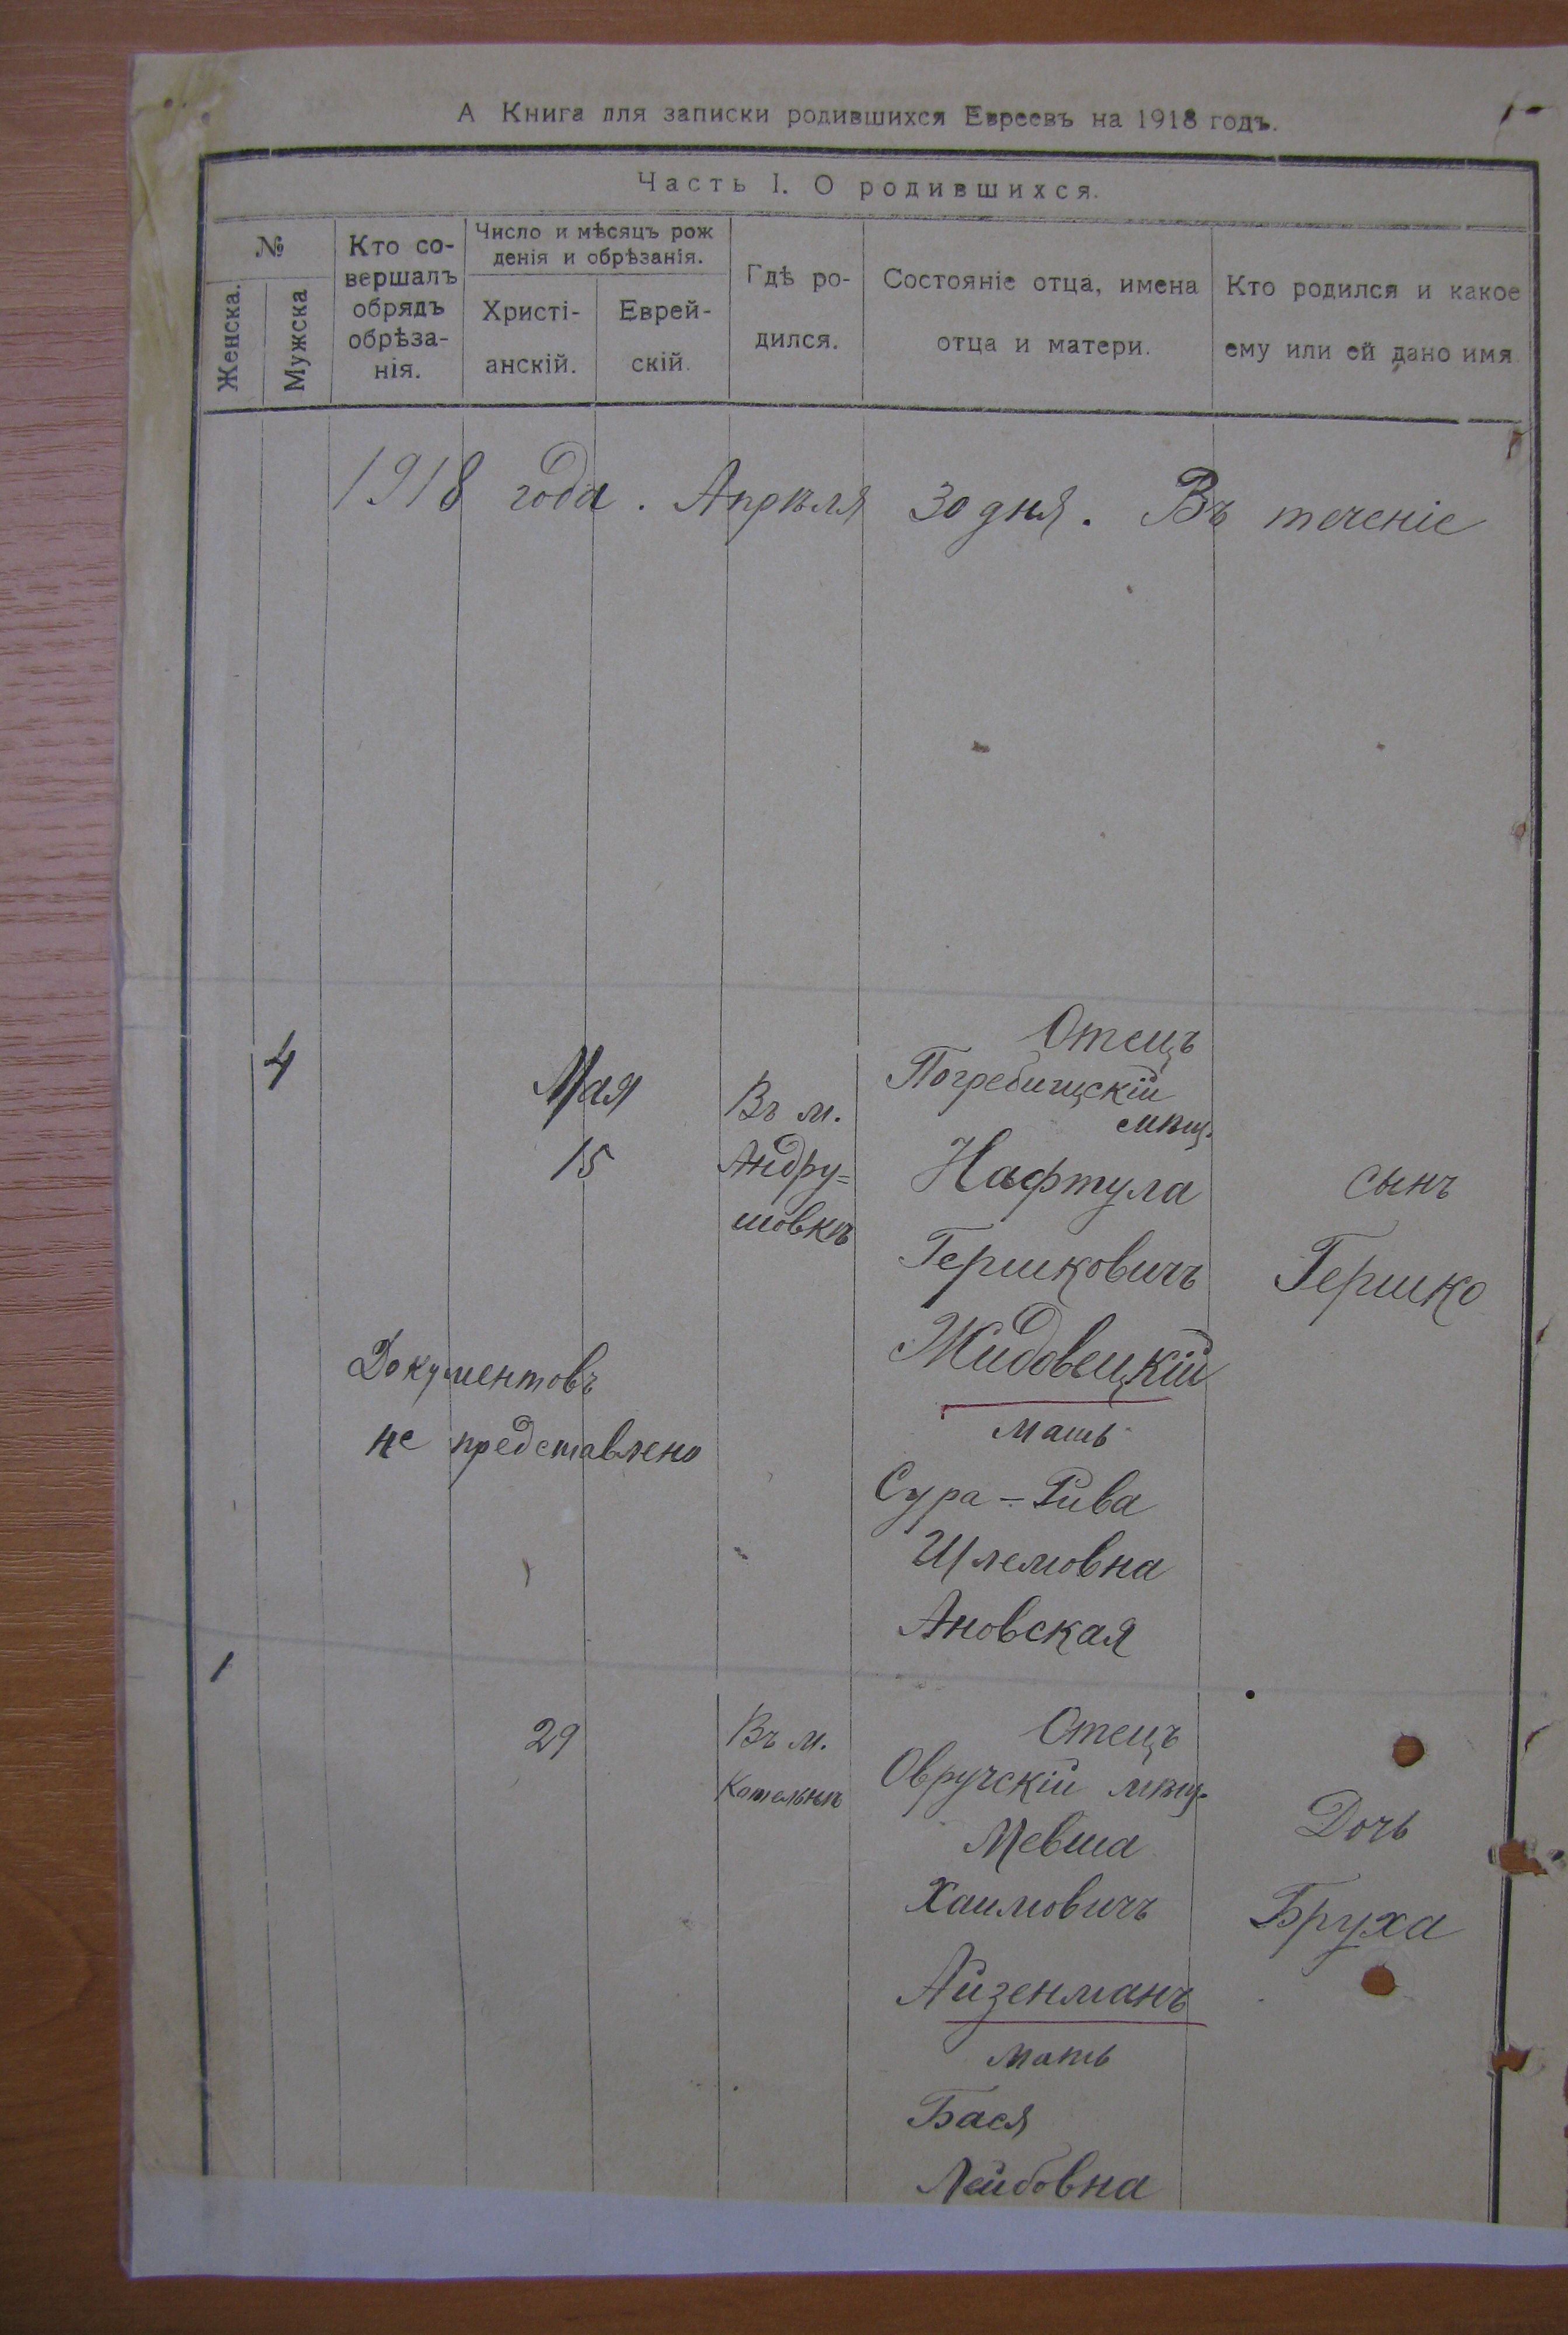 А Книга для записки родившихся Евреевъ на 1918 годъ.
Часть I. О родившихся.
№
Женска.
Мужска
Кто со-
вершалъ
обрядъ
обрѣза-
нія.
Число и мѣсяцъ рож
денія и обрѣзанія.
Христі-
анскій.
Еврей-
скій.
Гдѣ ро-
дился.
Состояніе отца, имена
отца и матери.
Кто родился и какое
ему или ей дано имя
1918 года. Апрѣля 30 дня. Въ теченіе
4
Мая
15
Въ м.
Андру=
шовкѣ
Отецъ
Погребищскій
мѣщ.
Нафтула
Гершковичъ
Жидовецкій
мать
Сура-Рива
Шлемовна
Ановская
сынъ
Гершко
Документовъ
не представлено
1
29
Въ м.
Котельнѣ
Отецъ
Овручскій мѣщ.
Мевша
Хаимовичъ
Айзенманъ
мать
Бася
Лейбовна
Дочь
Бруха